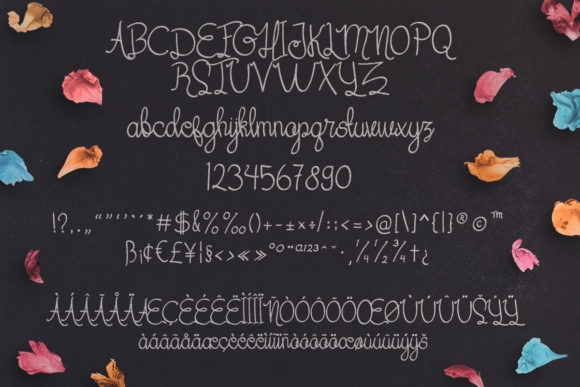 ABCDEFGHIJKLMNOPQ
RSTUVWXYZ
abcdefghijklmnopqrstuvwxyz
1234567890
!?,.„“”‘’`´*#$&%‰()+-±×÷/:;<=>@[\]^{|}®©™
ß¡¢€£¥¦§<>«»°º¨ªa123~˘·‚¼½¾†¿
ÀÁÂÃÄÅÆÇÈÉÊËÌÍÎÏÑÒÓÔÕÖŒØÙÚÛÜŠÝŸ
àáâãäåæçèéêëìíîïñòóôõöœøùúûüýÿš